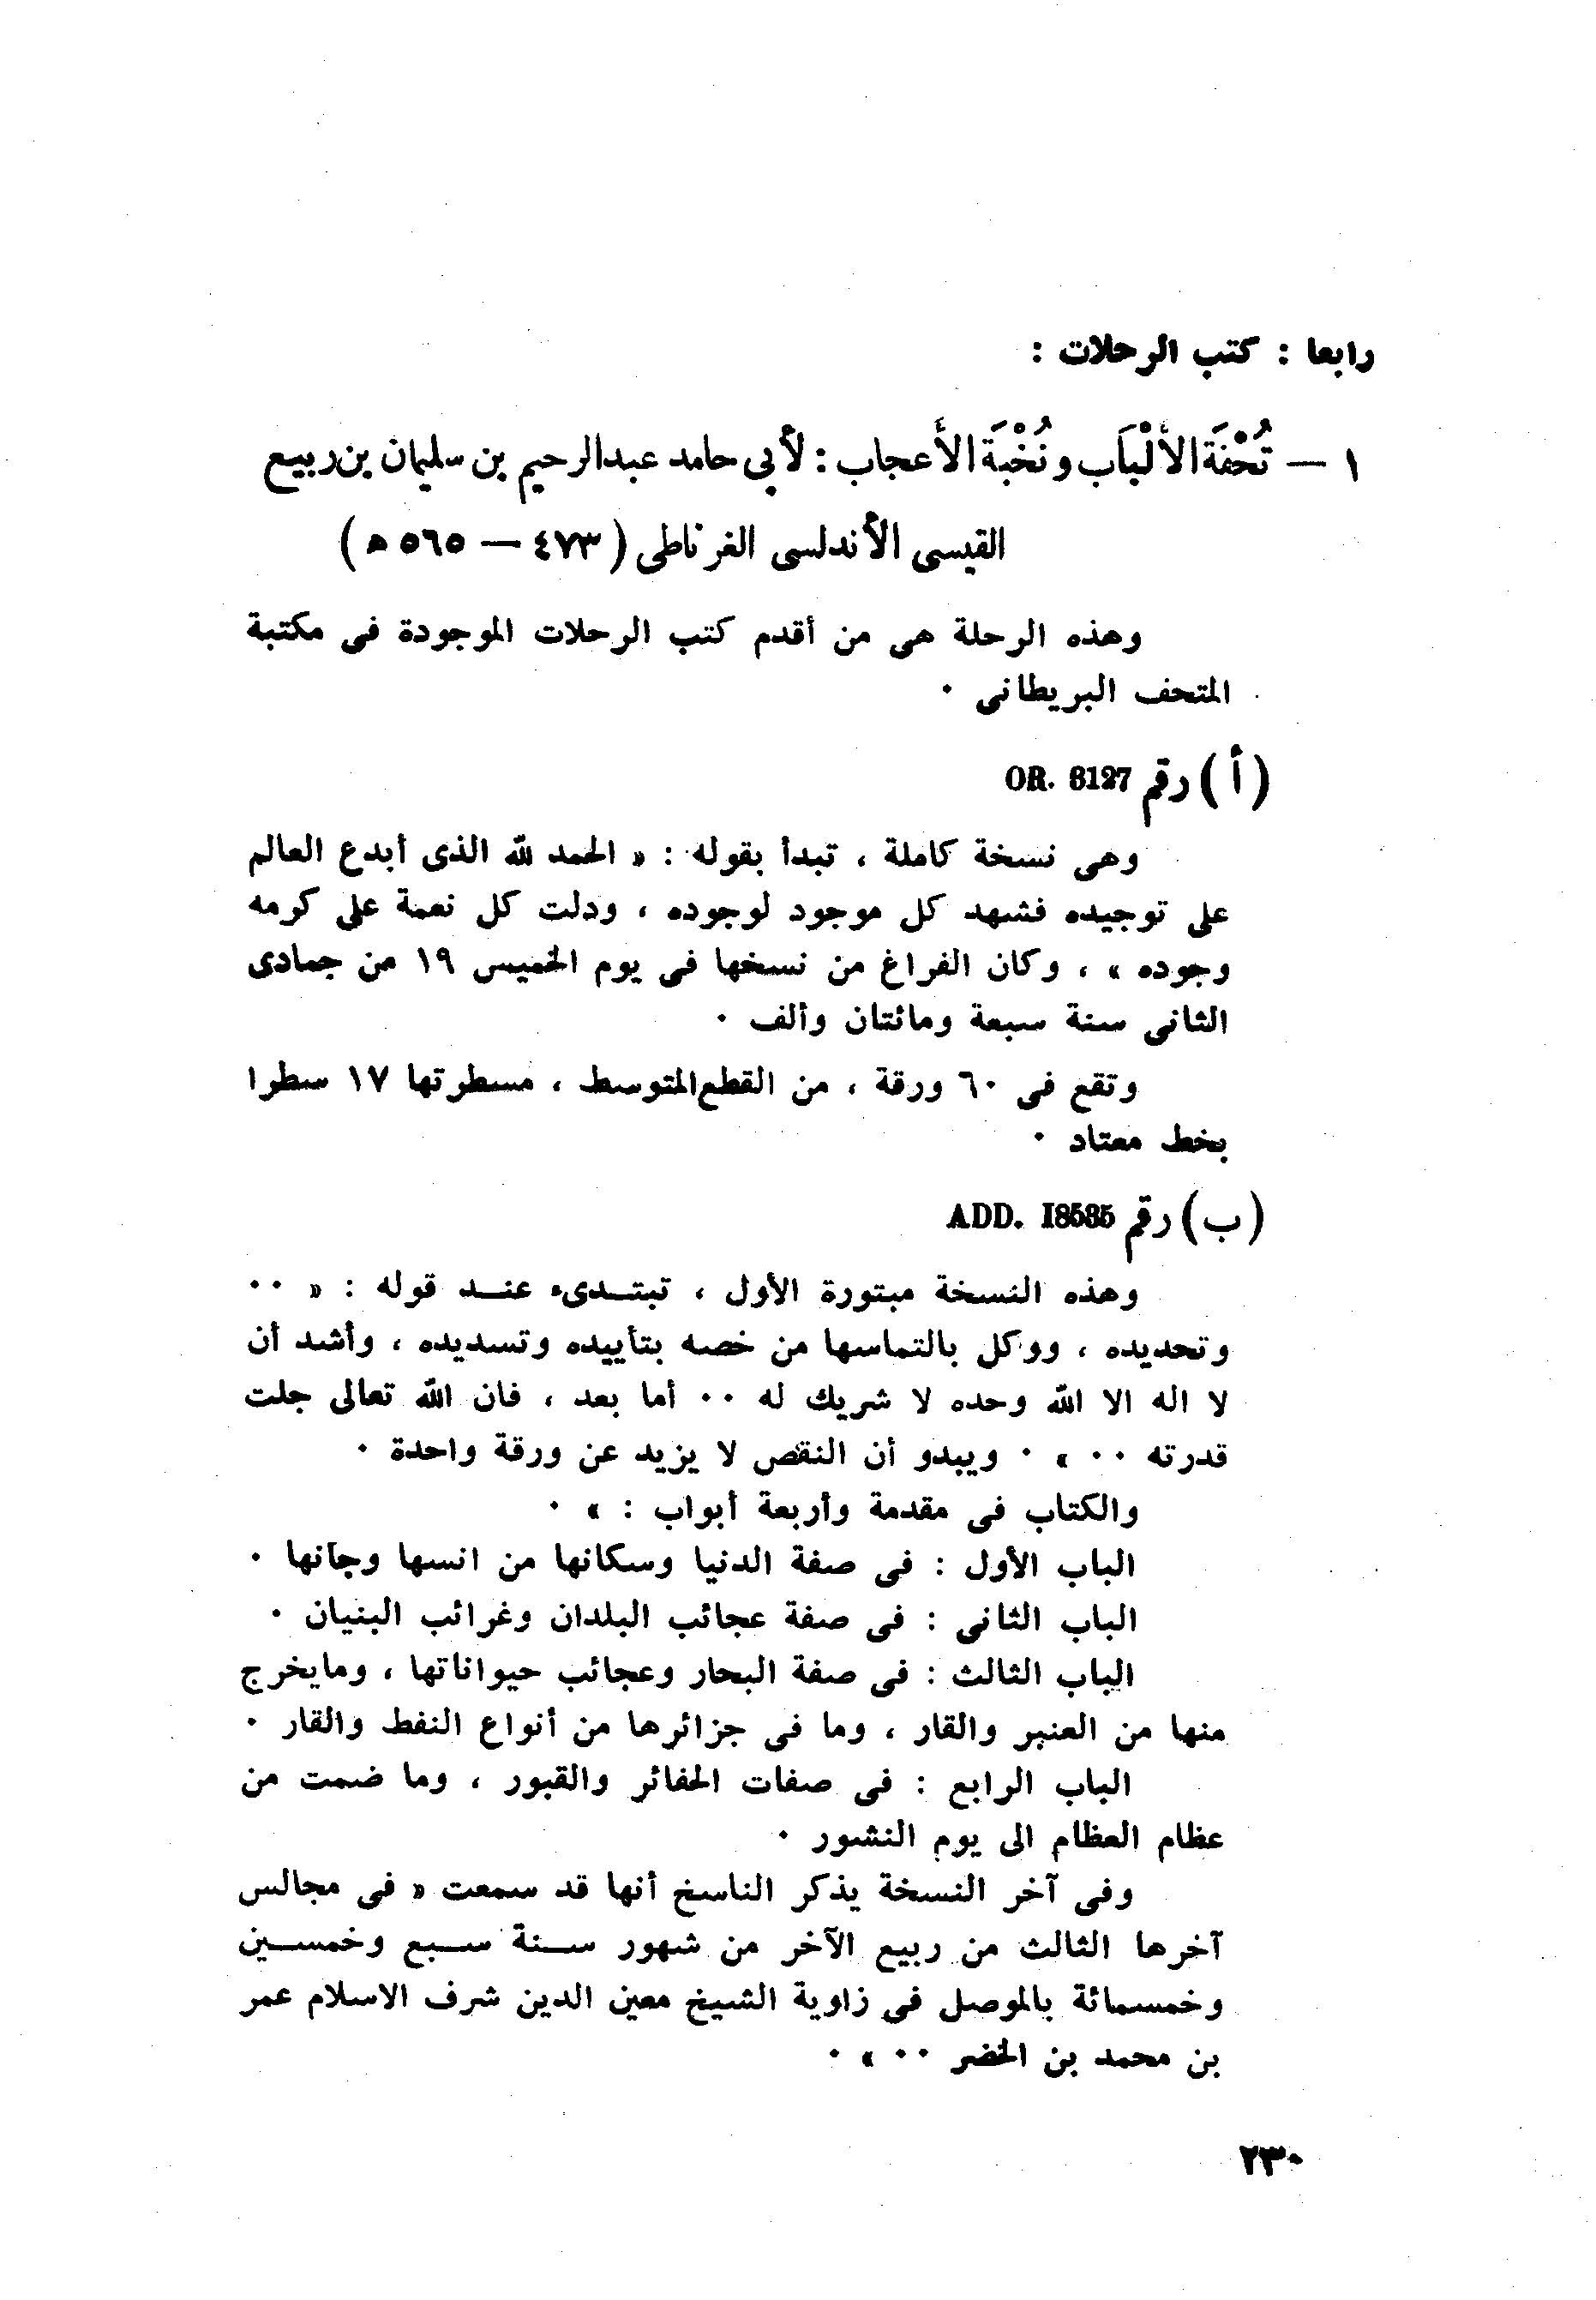 رابعا : كتب الرحلات :
١ — تُحْفَة الأَلْبَاب ونُخْبَة الأَعجاب : لأبي حامد عبدالرحيم بن سليمان بن ربيع
القيسى الأندلسى الغرناطى ( ٤٧٣ — ٥٦٥ ه )
وهذه الرحلة هى من أقدم كتب الرحلات الموجودة فى مكتبة
المتحف البريطانى ٠
( أ ) رقم OR. 8127
وهى نسخة كاملة ، تبدأ بقوله : « الحمد لله الذى أبدع العالم
على توحيده فشهد كل موجود لوجوده ، ودلت كل نعمة على كرمه
وجوده » ، وكان الفراغ من نسخها فى يوم الخميس ١٩ من جمادى
الثانى سنة سبعة ومائتان وألف ٠
وتقع فى ٦٠ ورقة ، من القطع المتوسط ، مسطرتها ١٧ سطرا
بخط معتاد ٠
( ب ) رقم ADD. I8535
وهذه النسخة مبتورة الأول ، تبتــدىء عنــد قوله : « ٠٠
وتحديده ، ووكل بالتماسها من خصه بتأييده وتسديده ، وأشد أن
لا اله الا الله وحده لا شريك له ٠٠ أما بعد ، فان الله تعالى جلت
قدرته ٠٠ » ٠ ويبدو أن النقص لا يزيد عن ورقة واحدة ٠
والكتاب فى مقدمة وأربعة أبواب : » ٠
الباب الأول : فى صفة الدنيا وسكانها من انسها وجآنها ٠
الباب الثانى : فى صفة عجائب البلدان وغرائب البنيان ٠
الباب الثالث : فى صفة البحار وعجائب حيواناتها ، ومايخرج
منها من العنبر والقار ، وما فى جزائرها من أنواع النفط والقار ٠
الباب الرابع : فى صفات الحفائر والقبور ، وما ضمت من
عظام العظام الى يوم النشور ٠
وفى آخر النسخة يذكر الناسخ أنها قد سمعت « فى مجالس
آخرها الثالث من ربيع الآخر من شهور ســنة ســبع وخمســين
وخمسمائة بالموصل فى زاوية الشيخ معين الدين شرف الاسلام عمر
بن محمد بن الخضر ٠٠ » ٠
٢٣٠